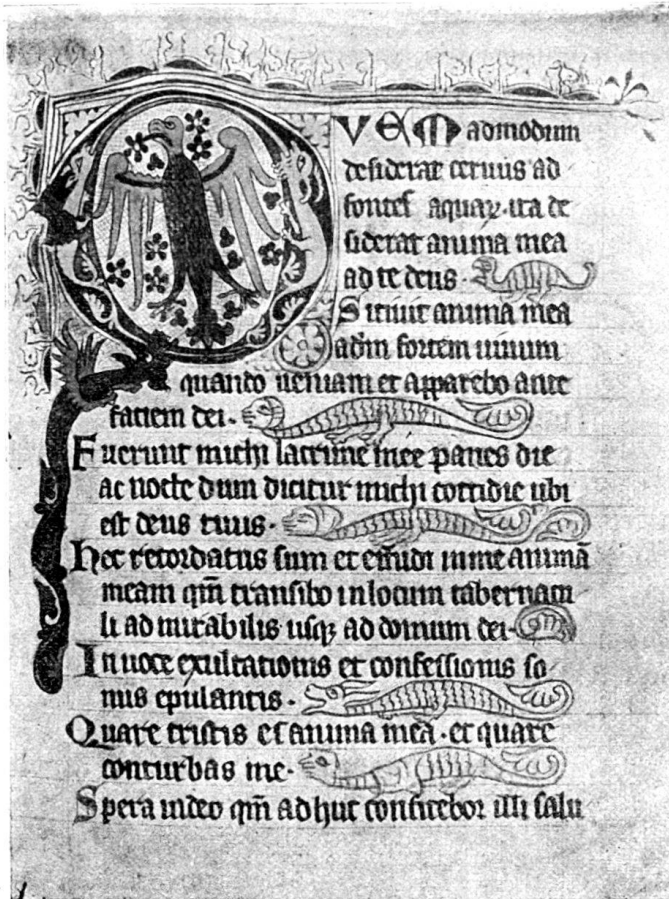 QVEM admodum
desiderat cervus ad
fontes aquaꝝ · ita de
siderat anima mea
ad te deus ·
Sitivit anima mea
ad dm̄ fortem vivum
quando veniam et apparebo ante
faciem dei ·
Fuerunt michi lacrime mee panes die
ac nocte dum dicitur michi cottidie ubi
est deus tuus ·
Hec recordatus sum et effudi in me animā
meam qm̄ transibo in locum tabernacu
li ad mirabilis usqꝫ ad domum dei ·
In voce exultationis et confessionis so
nus epulantis ·
Quare tristis es anima mea · et quare
conturbas me ·
Spera in deo qm̄ adhuc confitebor illi salu